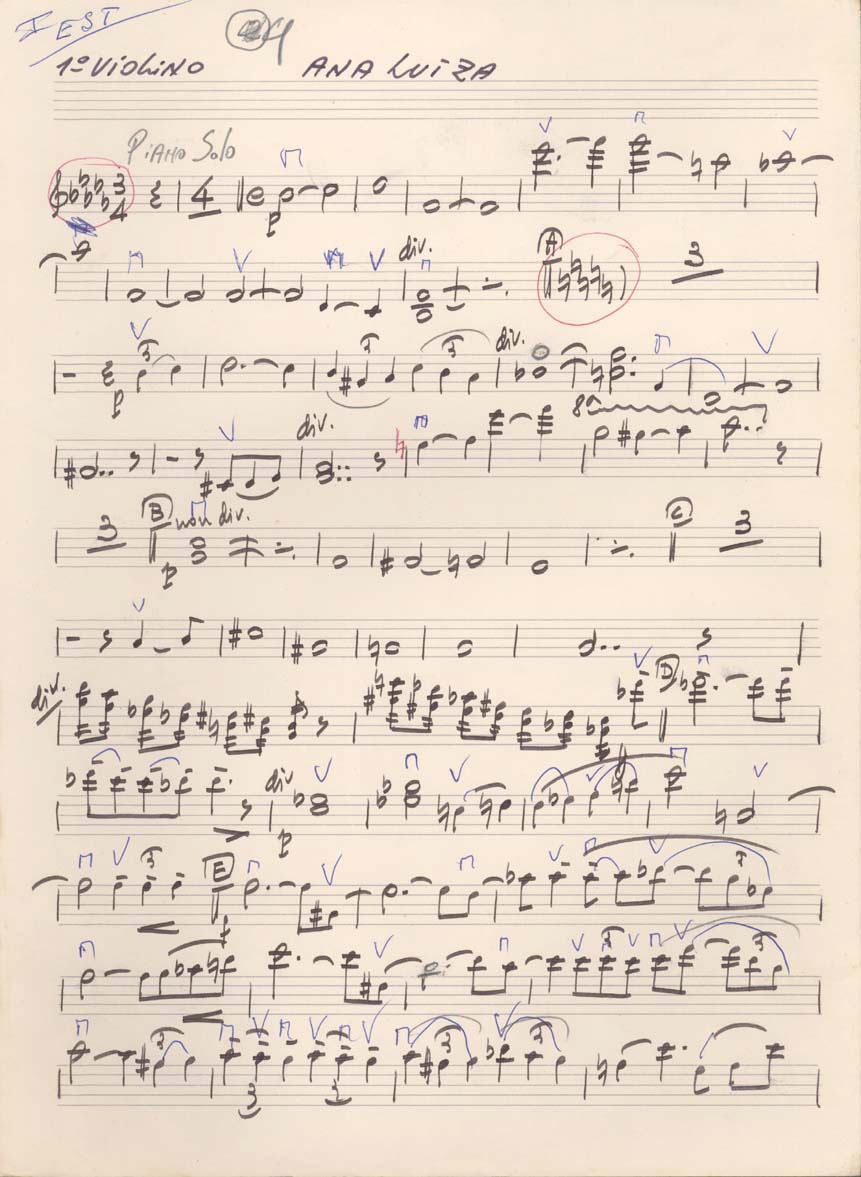 EST
1º VIOLINO ANA LUIZA
PIANO Solo
3
4
4
p
div.
A
3
3
3
div.
p
8ª
div.
3
B
non div.
C
3
p
div.
D
div
p
3
E
3
3
3
3
3
3
3
3